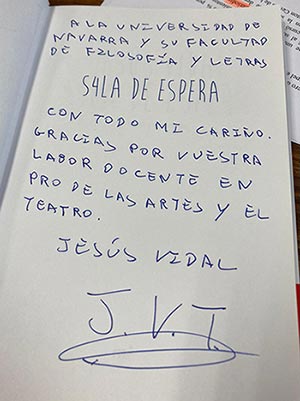 A LA UNIVERSIDAD DE
NAVARRA Y SU FACULTAD
DE FILOSOFÍA Y LETRAS
S4LA DE ESPERA
CON TODO MI CARIÑO.
GRACIAS POR VUESTRA
LABOR DOCENTE EN
PRO DE LAS ARTES Y EL
TEATRO.
JESÚS VIDAL
J.V.T.